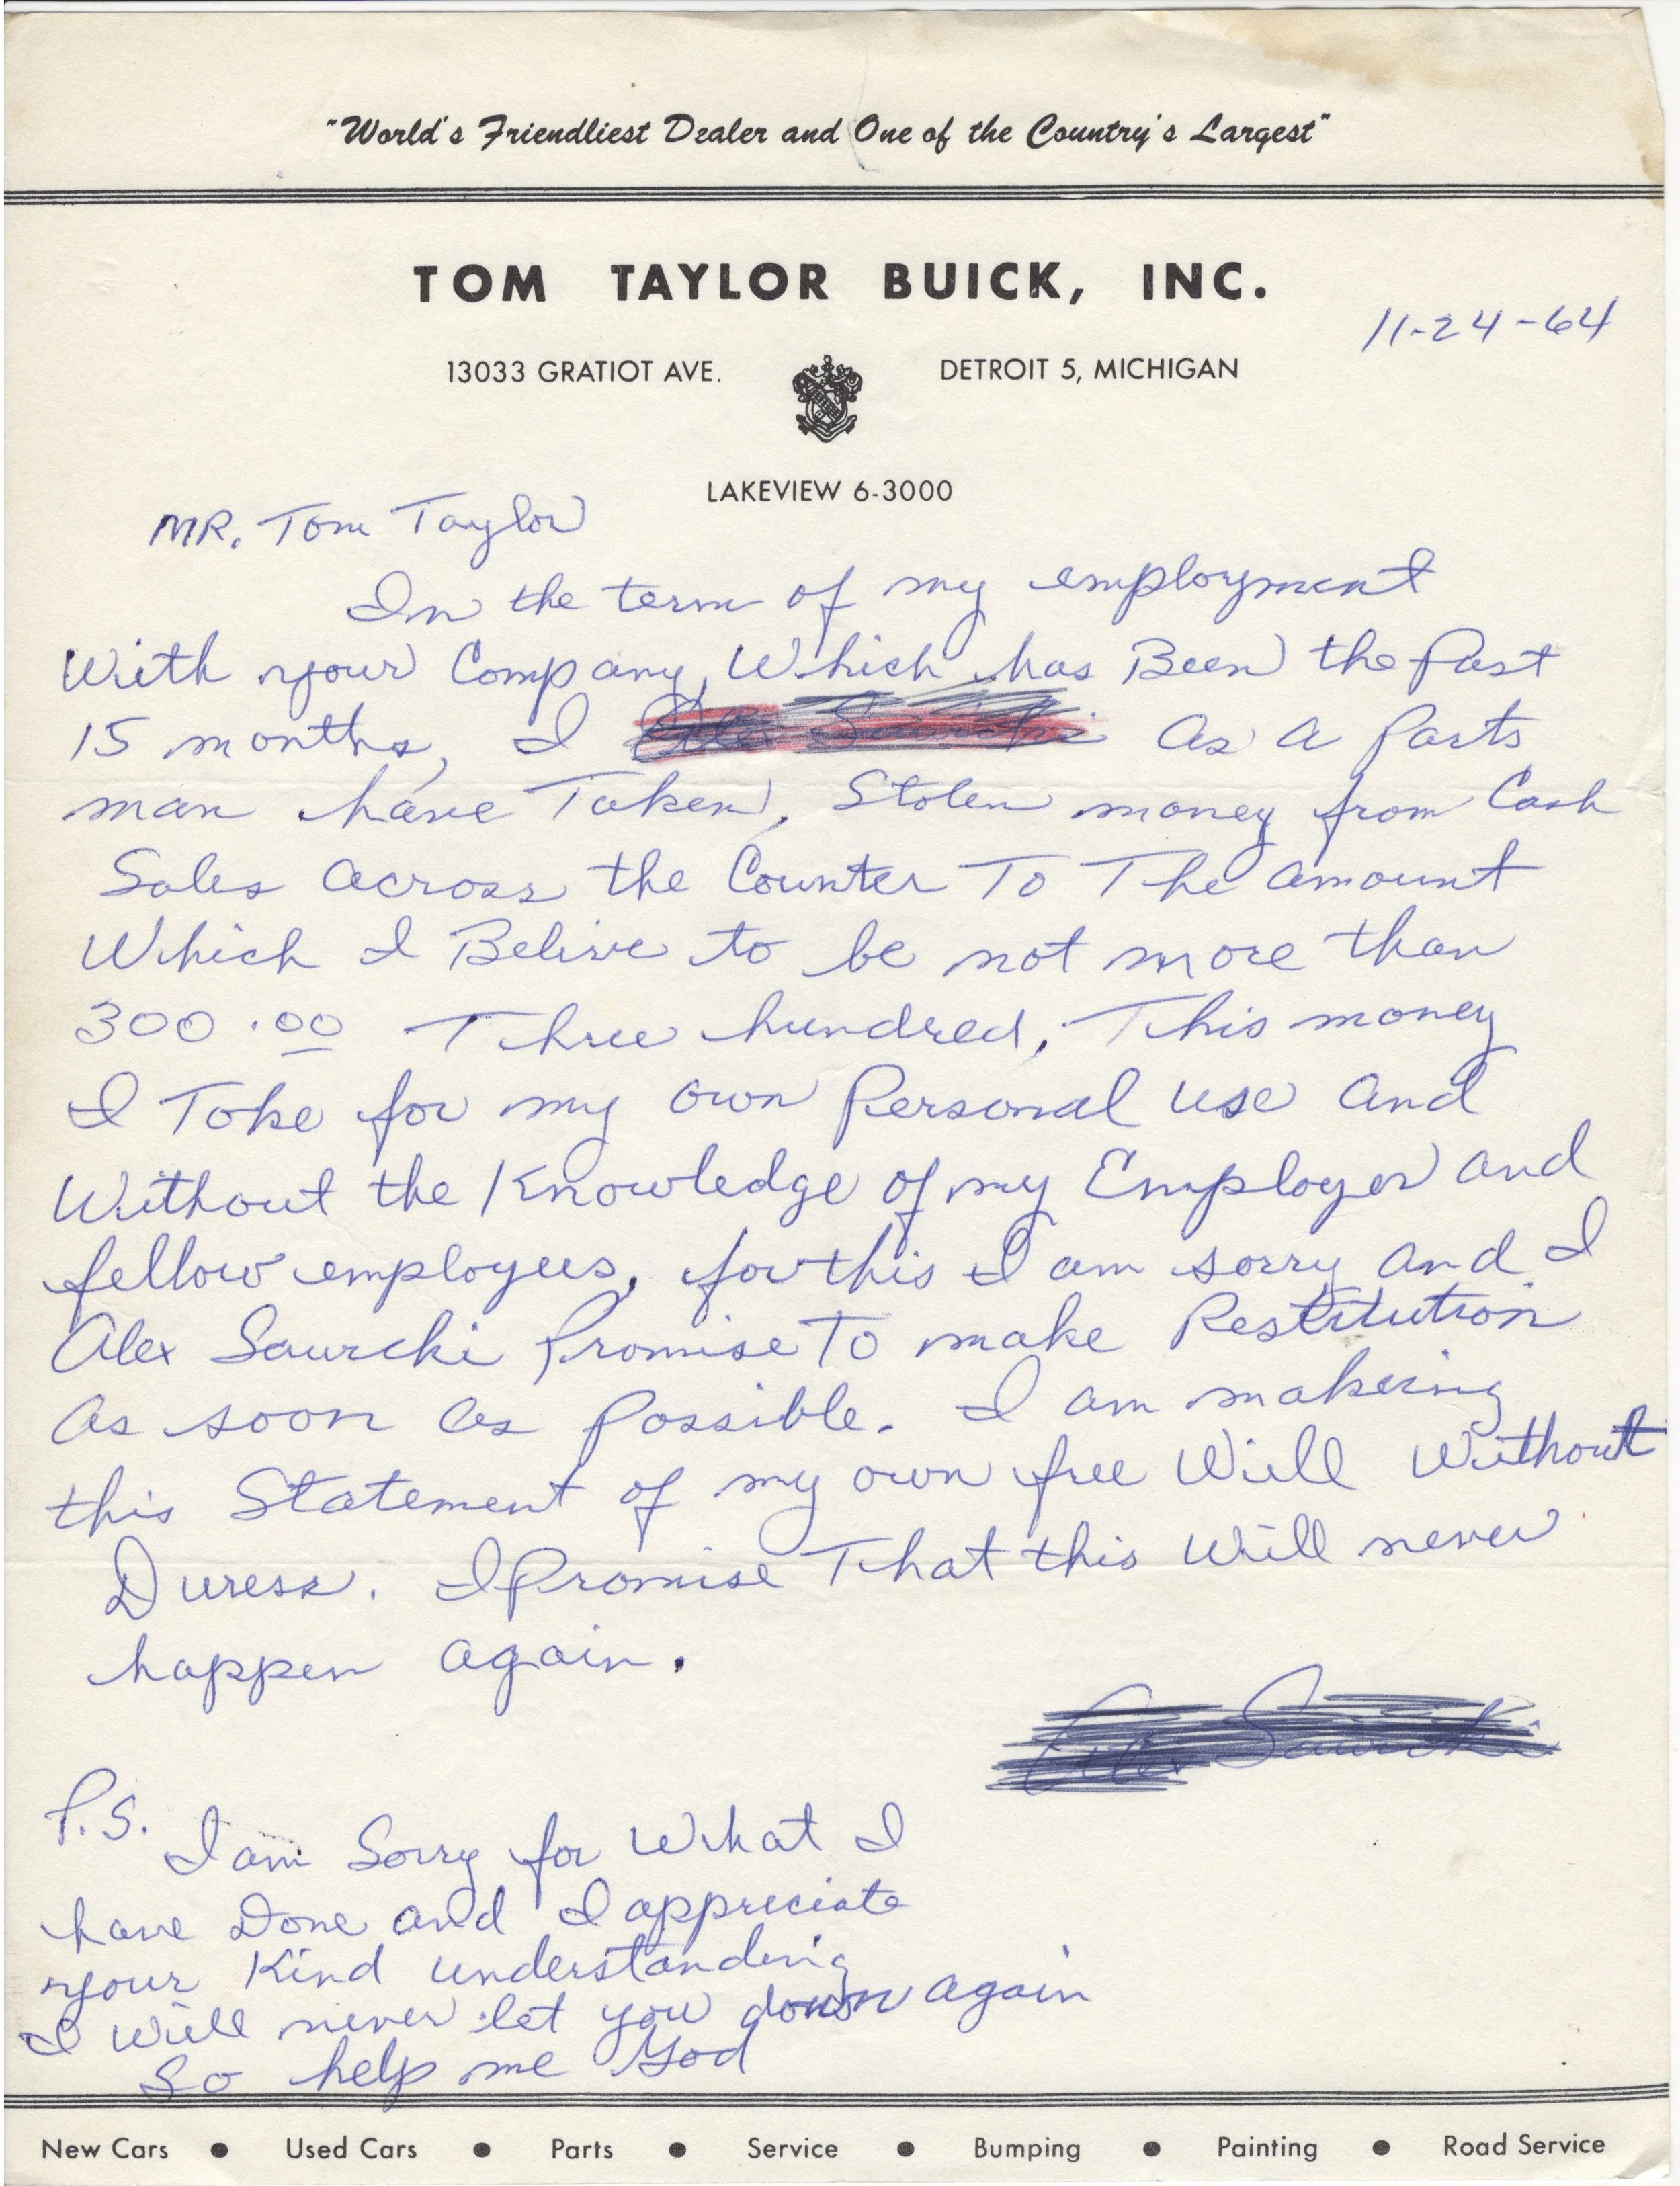 "World's Friendliest Dealer and One of the Country's Largest"
TOM TAYLOR BUICK, INC.
11-24-64
13033 GRATIOT AVE. DETROIT 5, MICHIGAN
LAKEVIEW 6-3000
MR. Tom Taylor
In the term of my employment
With your Company, Which has Been the Past
15 months, I As a Parts
man have Taken, Stolen money from Cash
Sales across the Counter To The amount
Which I Belive to be not more than
300.00 Three hundred. This money
I Toke for my own Personal use and
Without the Knowledge of my Employer and
fellow employees, for this I am sorry and I
Alex Sawicki Promise To make Restitution
as soon as Possible. I am makeing
this Statement of my own free Will Without
Duress. I Promise That this Will never
happen again.
P.S.
I am Sorry for What I
have Done and I appreciate
your Kind understanding
I Will never let you down again
So help me God
New Cars • Used Cars • Parts • Service • Bumping • Painting • Road Service